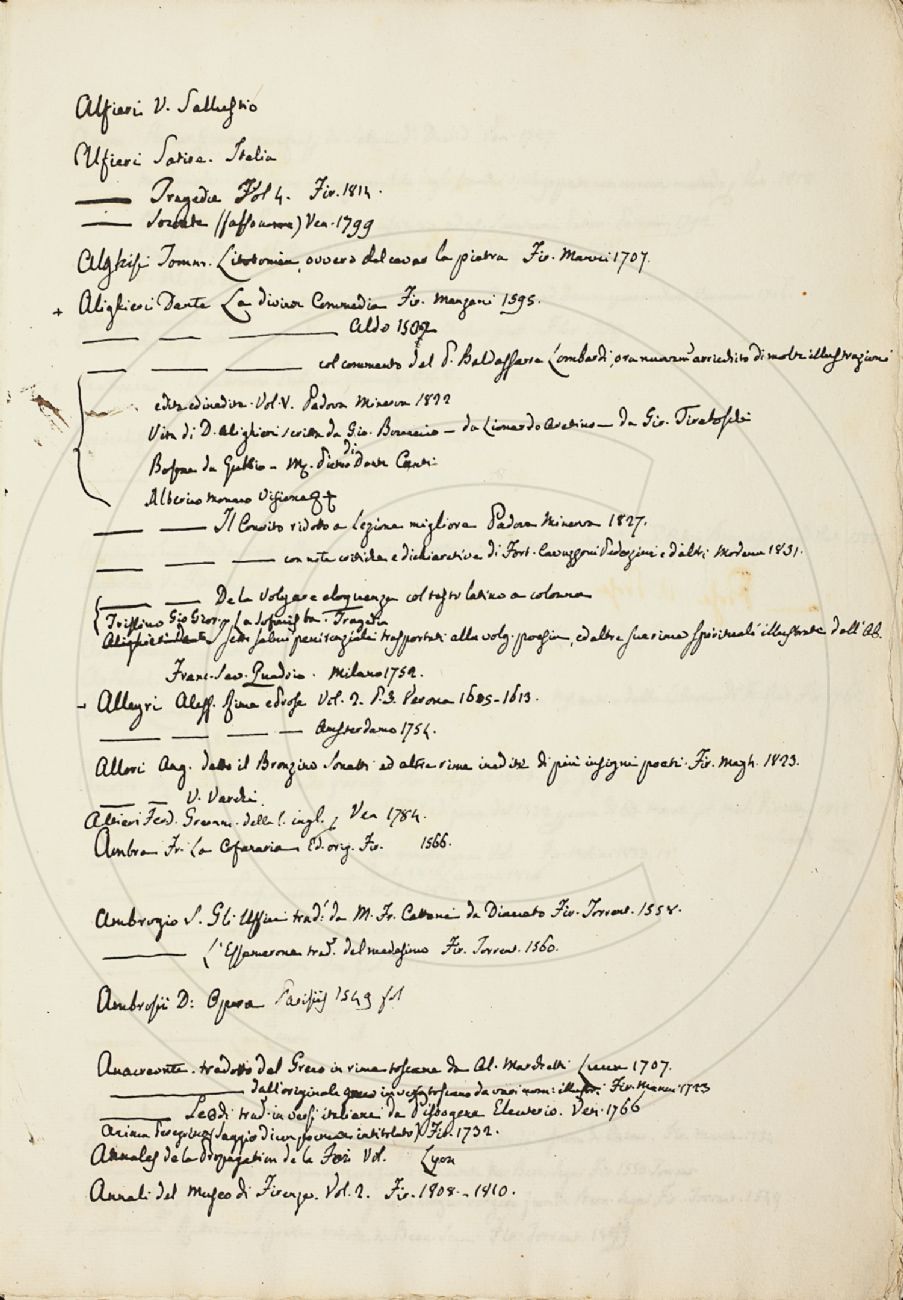 Alfieri V. Sallustio
Alfieri Satire. Italia
—— Tragedie Vol 4. Fir. 1814.
—— Socrate Ven. 1799
Alghisi Tomm. Litotomia, ovvero del cavar la pietra Fir. Manni 1707.
+ Alighieri Dante La divina Commedia Fir. Manzani 1595.
—— —— —— Aldo 1502
—— —— —— col commento del P. Baldassarre Lombardi, ora nuovam. arricchito di molte illustrazioni
edite ed inedite. Vol. V. Padova Minerva 1822
Vita di D. Alighieri scritta da Gio. Boccaccio — da Lionardo Aretino — da Gir. Tiraboschi
Bosone da Gubbio — Mr. Pietro di Dante
Alberico Monaco Visione
—— —— Il Convito ridotto a lezione migliore Padova Minerva 1827.
—— —— —— con note critiche e dichiarative di Fort. Cavazzoni Pederzini e d'altri Modena 1831.
—— —— De la Volgare eloquenza col testo latino a colonna
Trissino Gio Giorg. La Sofonisba. Tragedia
Alighieri Dante I sette salmi penitenziali trasportati alla volg. poesia, ed altre sue rime spirituali illustrate dall'Ab.
Franc. Sav. Quadrio. Milano 1752.
- Allegri Aless. Rime e Prose Vol. 2. P. 3. Verona 1605-1613.
—— —— —— — Amsterdamo 1754.
Allori Ang. detto il Bronzino Sonetti ed altre rime inedite di più insigni poeti. Fir. Magh. 1823.
—— — V. Varchi.
Altieri Ferd. Gramm. della l. ingl. Ven 1784.
Ambra Fr. La Cofanaria Ed. orig. Fir. 1566.
Ambrogio S. Gli Uffici trad. da M. Fr. Cattani da Diacceto Fir. Torrent. 1558.
—— L'Essamerone trad. del medesimo Fir. Torrent. 1560.
Ambrosii D: Opera Parisiis 1549 fol
Anacreonte. tradotto dal Greco in rime toscane da Al. Marchetti Lucca 1707.
—— dall'originale greco in versi toscani da vari nomi illustri. Fir. Manni 1723
—— Le Odi trad. in versi italiani da Eleuterio. Ven. 1766
Anima Peregrina (saggio di un poema intitolato) Fir. 1732.
Annales de la propagation de la Foi Vol. Lyon
Annali del Museo di Firenze. Vol. 2. Fir. 1808.-1810.